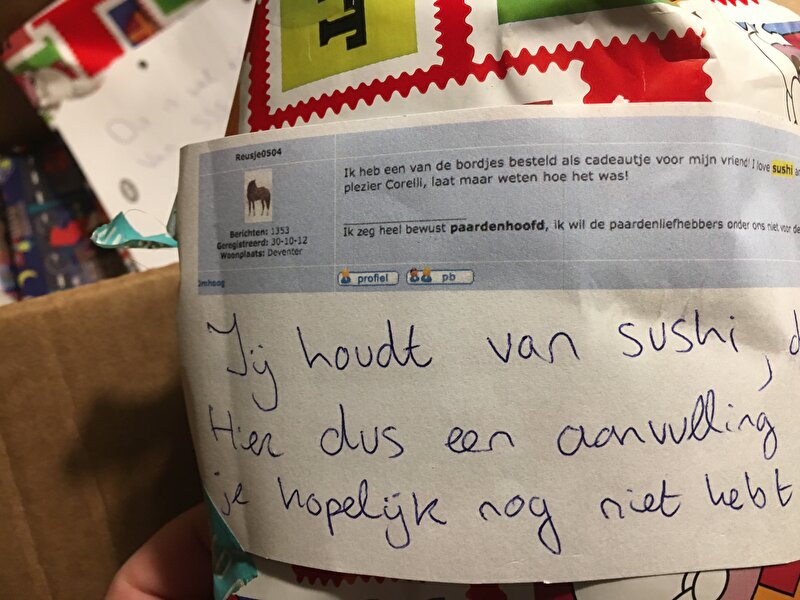 Reusje0504
Berichten: 1353
Geregistreerd: 30-10-12
Woonplaats: Deventer
Omhoog
Ik heb een van de bordjes besteld als cadeautje voor mijn vriend! I love sushi
plezier Corelli, laat maar weten hoe het was!
Ik zeg heel bewust paardenhoofd, ik wil de paardenliefhebbers onder ons niet voor de
profiel pb
Jij houdt van sushi,
Hier dus een aanvulling
je hopelijk nog niet hebt